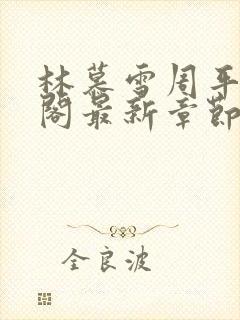 林慕雪周平
阁最新章节
全良波